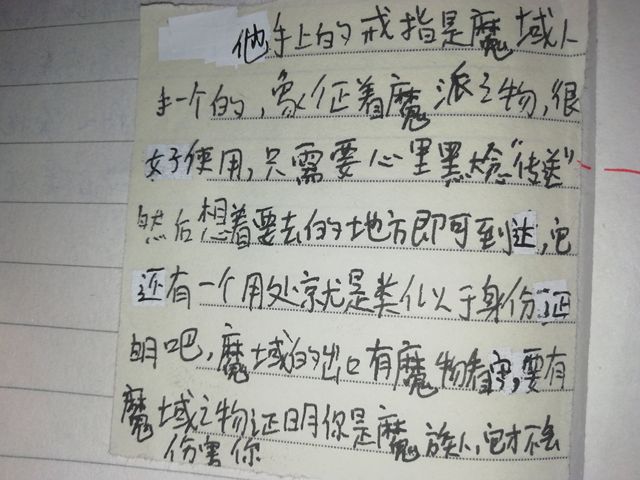 他手上的戒指是魔域人
手一个的,象征着魔派之物,很
好使用,只需要心里默念“传送”
然后想着要去的地方即可到达,它
还有一个用处京尤是类似于身份证
明吧,魔域的出口有魔物看守,要有
魔域之物证明你是魔族人,它才不会
伤害你